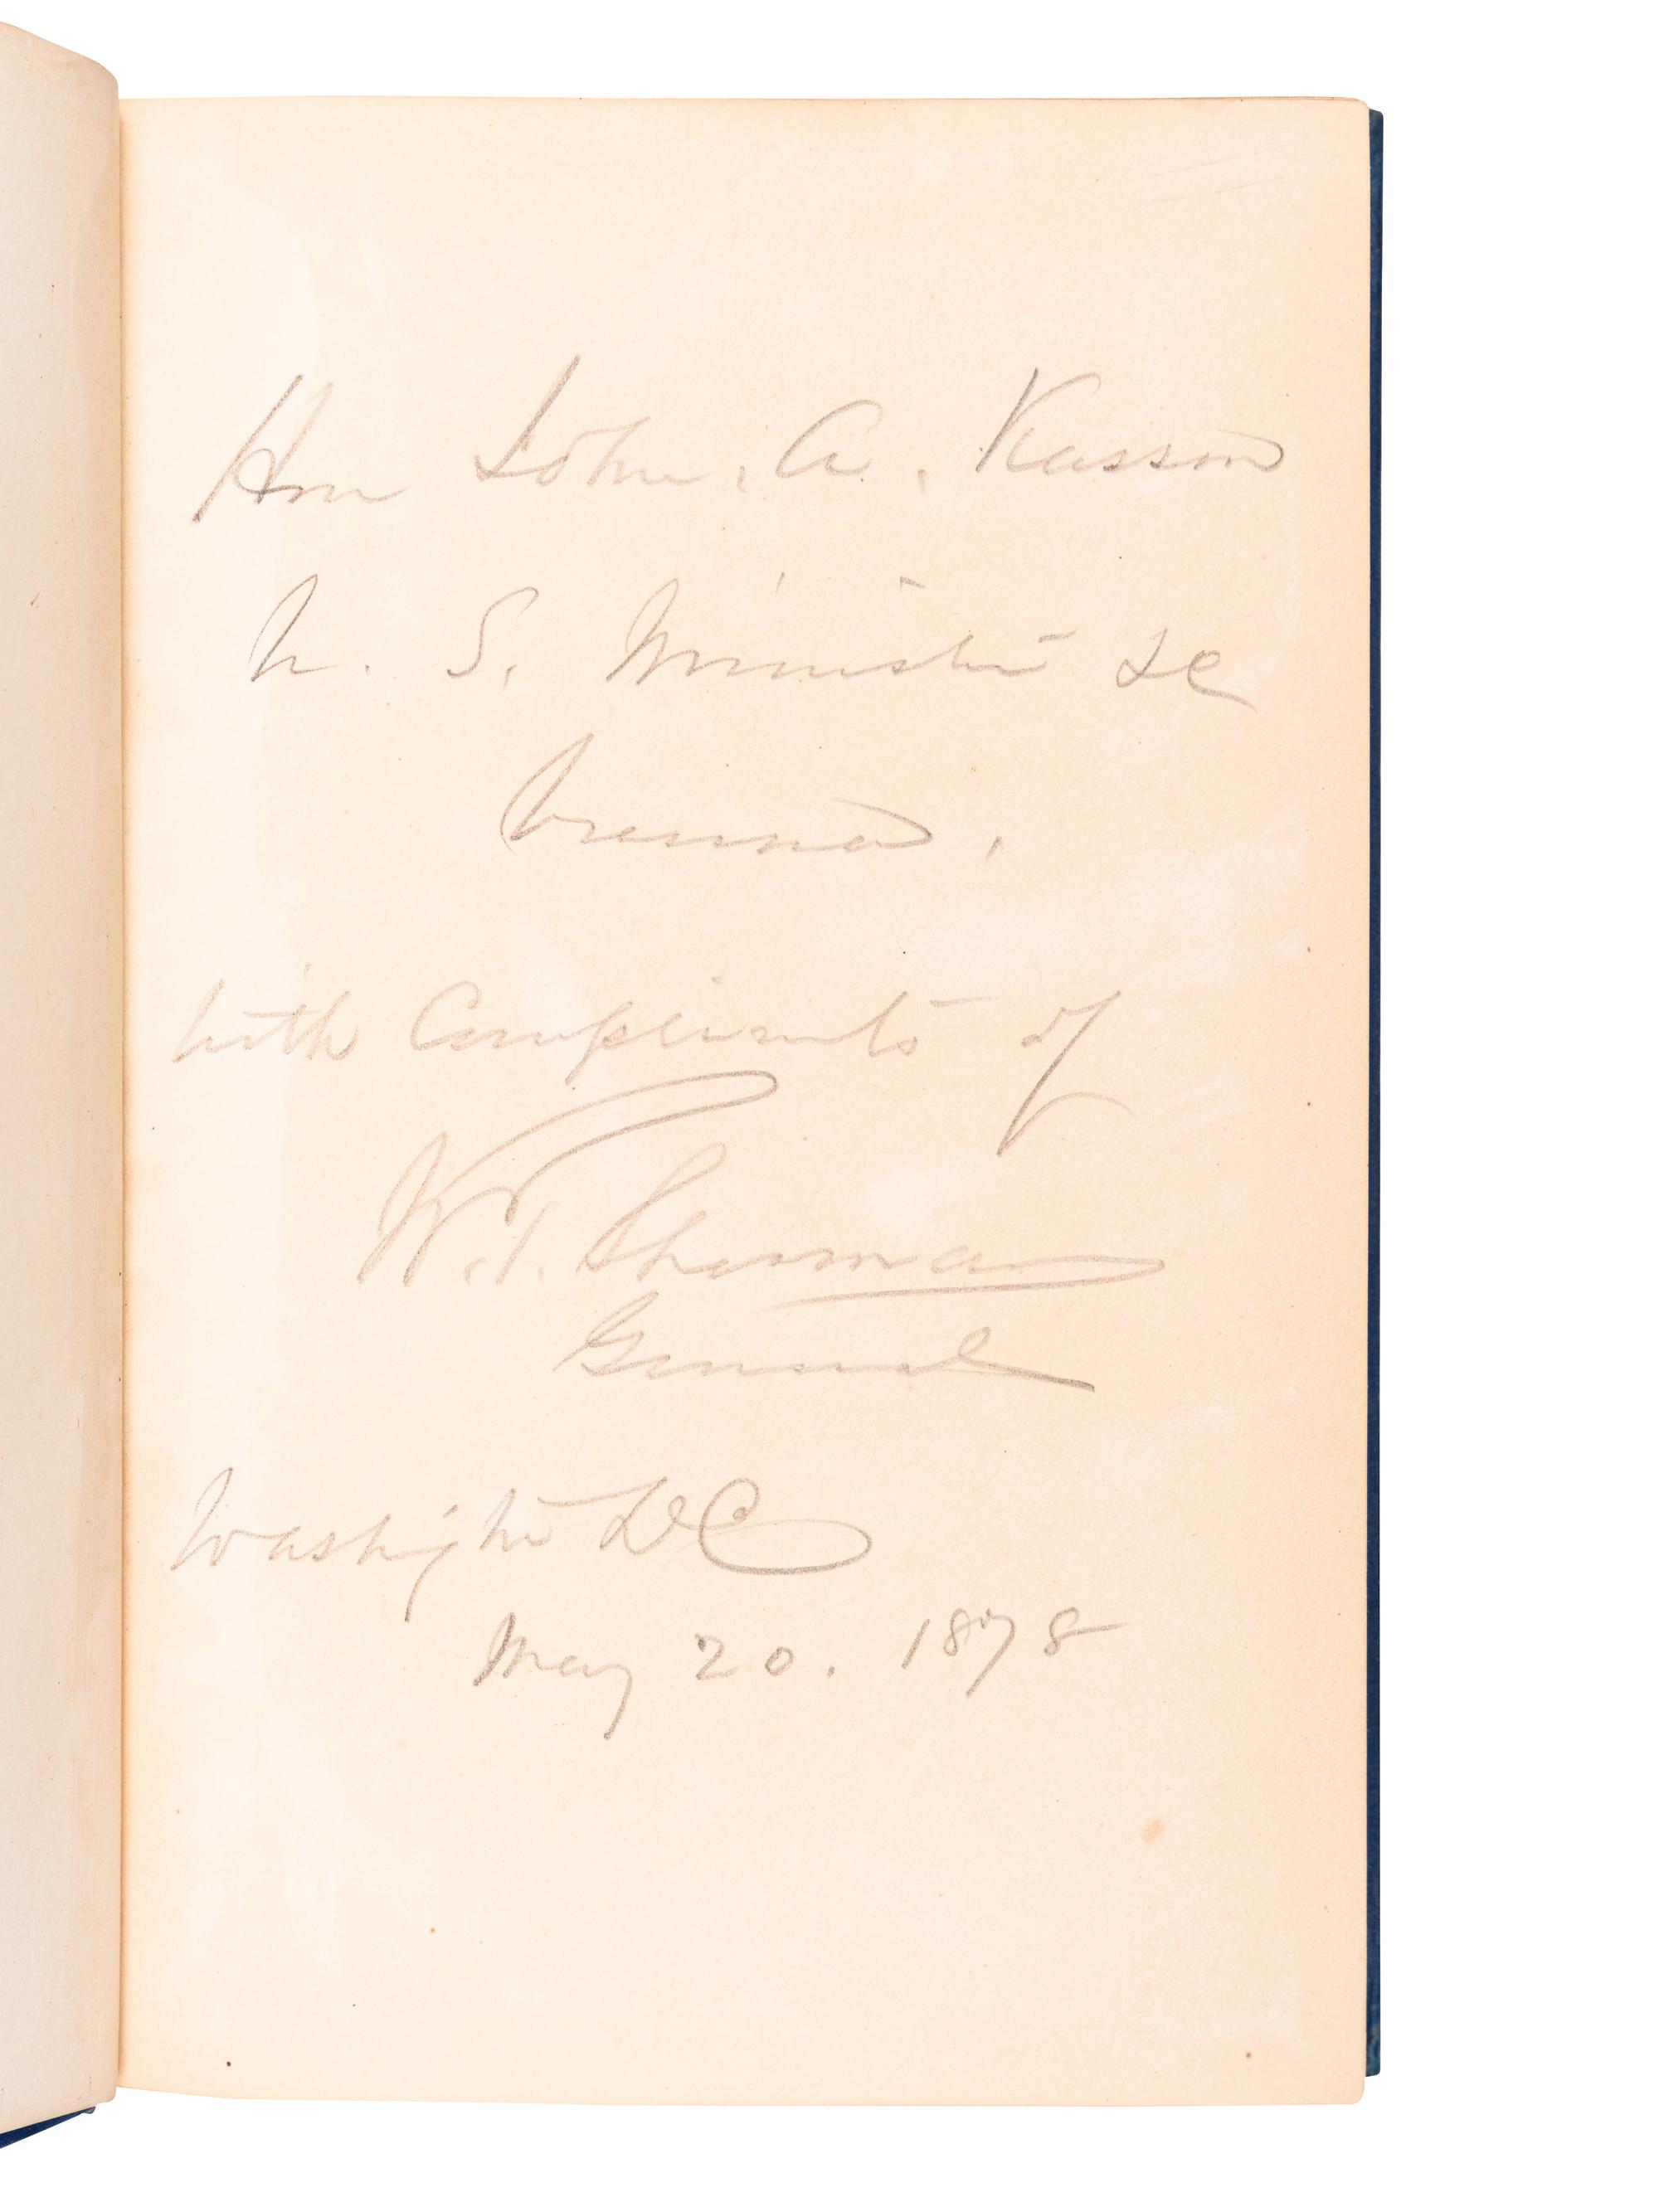 Hon John. A. Kasson
U. S. Minister &c
Vienna.
with Compliments of
W. T. Sherman
General
Washington DC
May 20. 1878